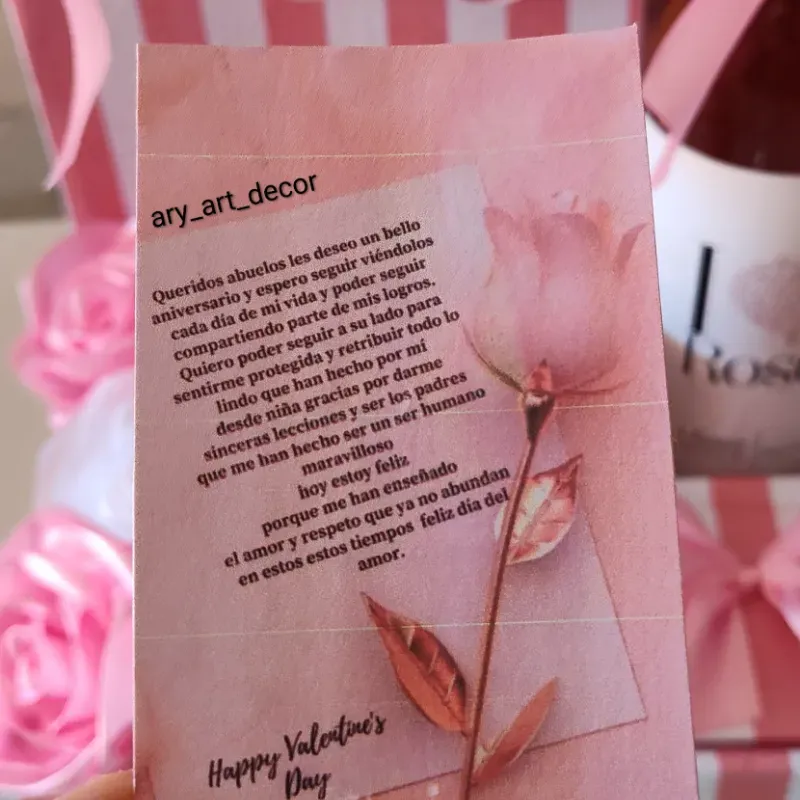 ary_art_decor
Queridos abuelos les deseo un bello
aniversario y espero seguir viéndolos
cada día de mi vida y poder seguir
compartiendo parte de mis logros.
Quiero poder seguir a su lado para
sentirme protegida y retribuir todo lo
lindo que han hecho por mí
desde niña gracias por darme
sinceras lecciones y ser los padres
que me han hecho ser un ser humano
maravilloso
hoy estoy feliz
porque me han enseñado
el amor y respeto que ya no abundan
en estos estos tiempos feliz día del
amor.
Happy Valentine's
Day